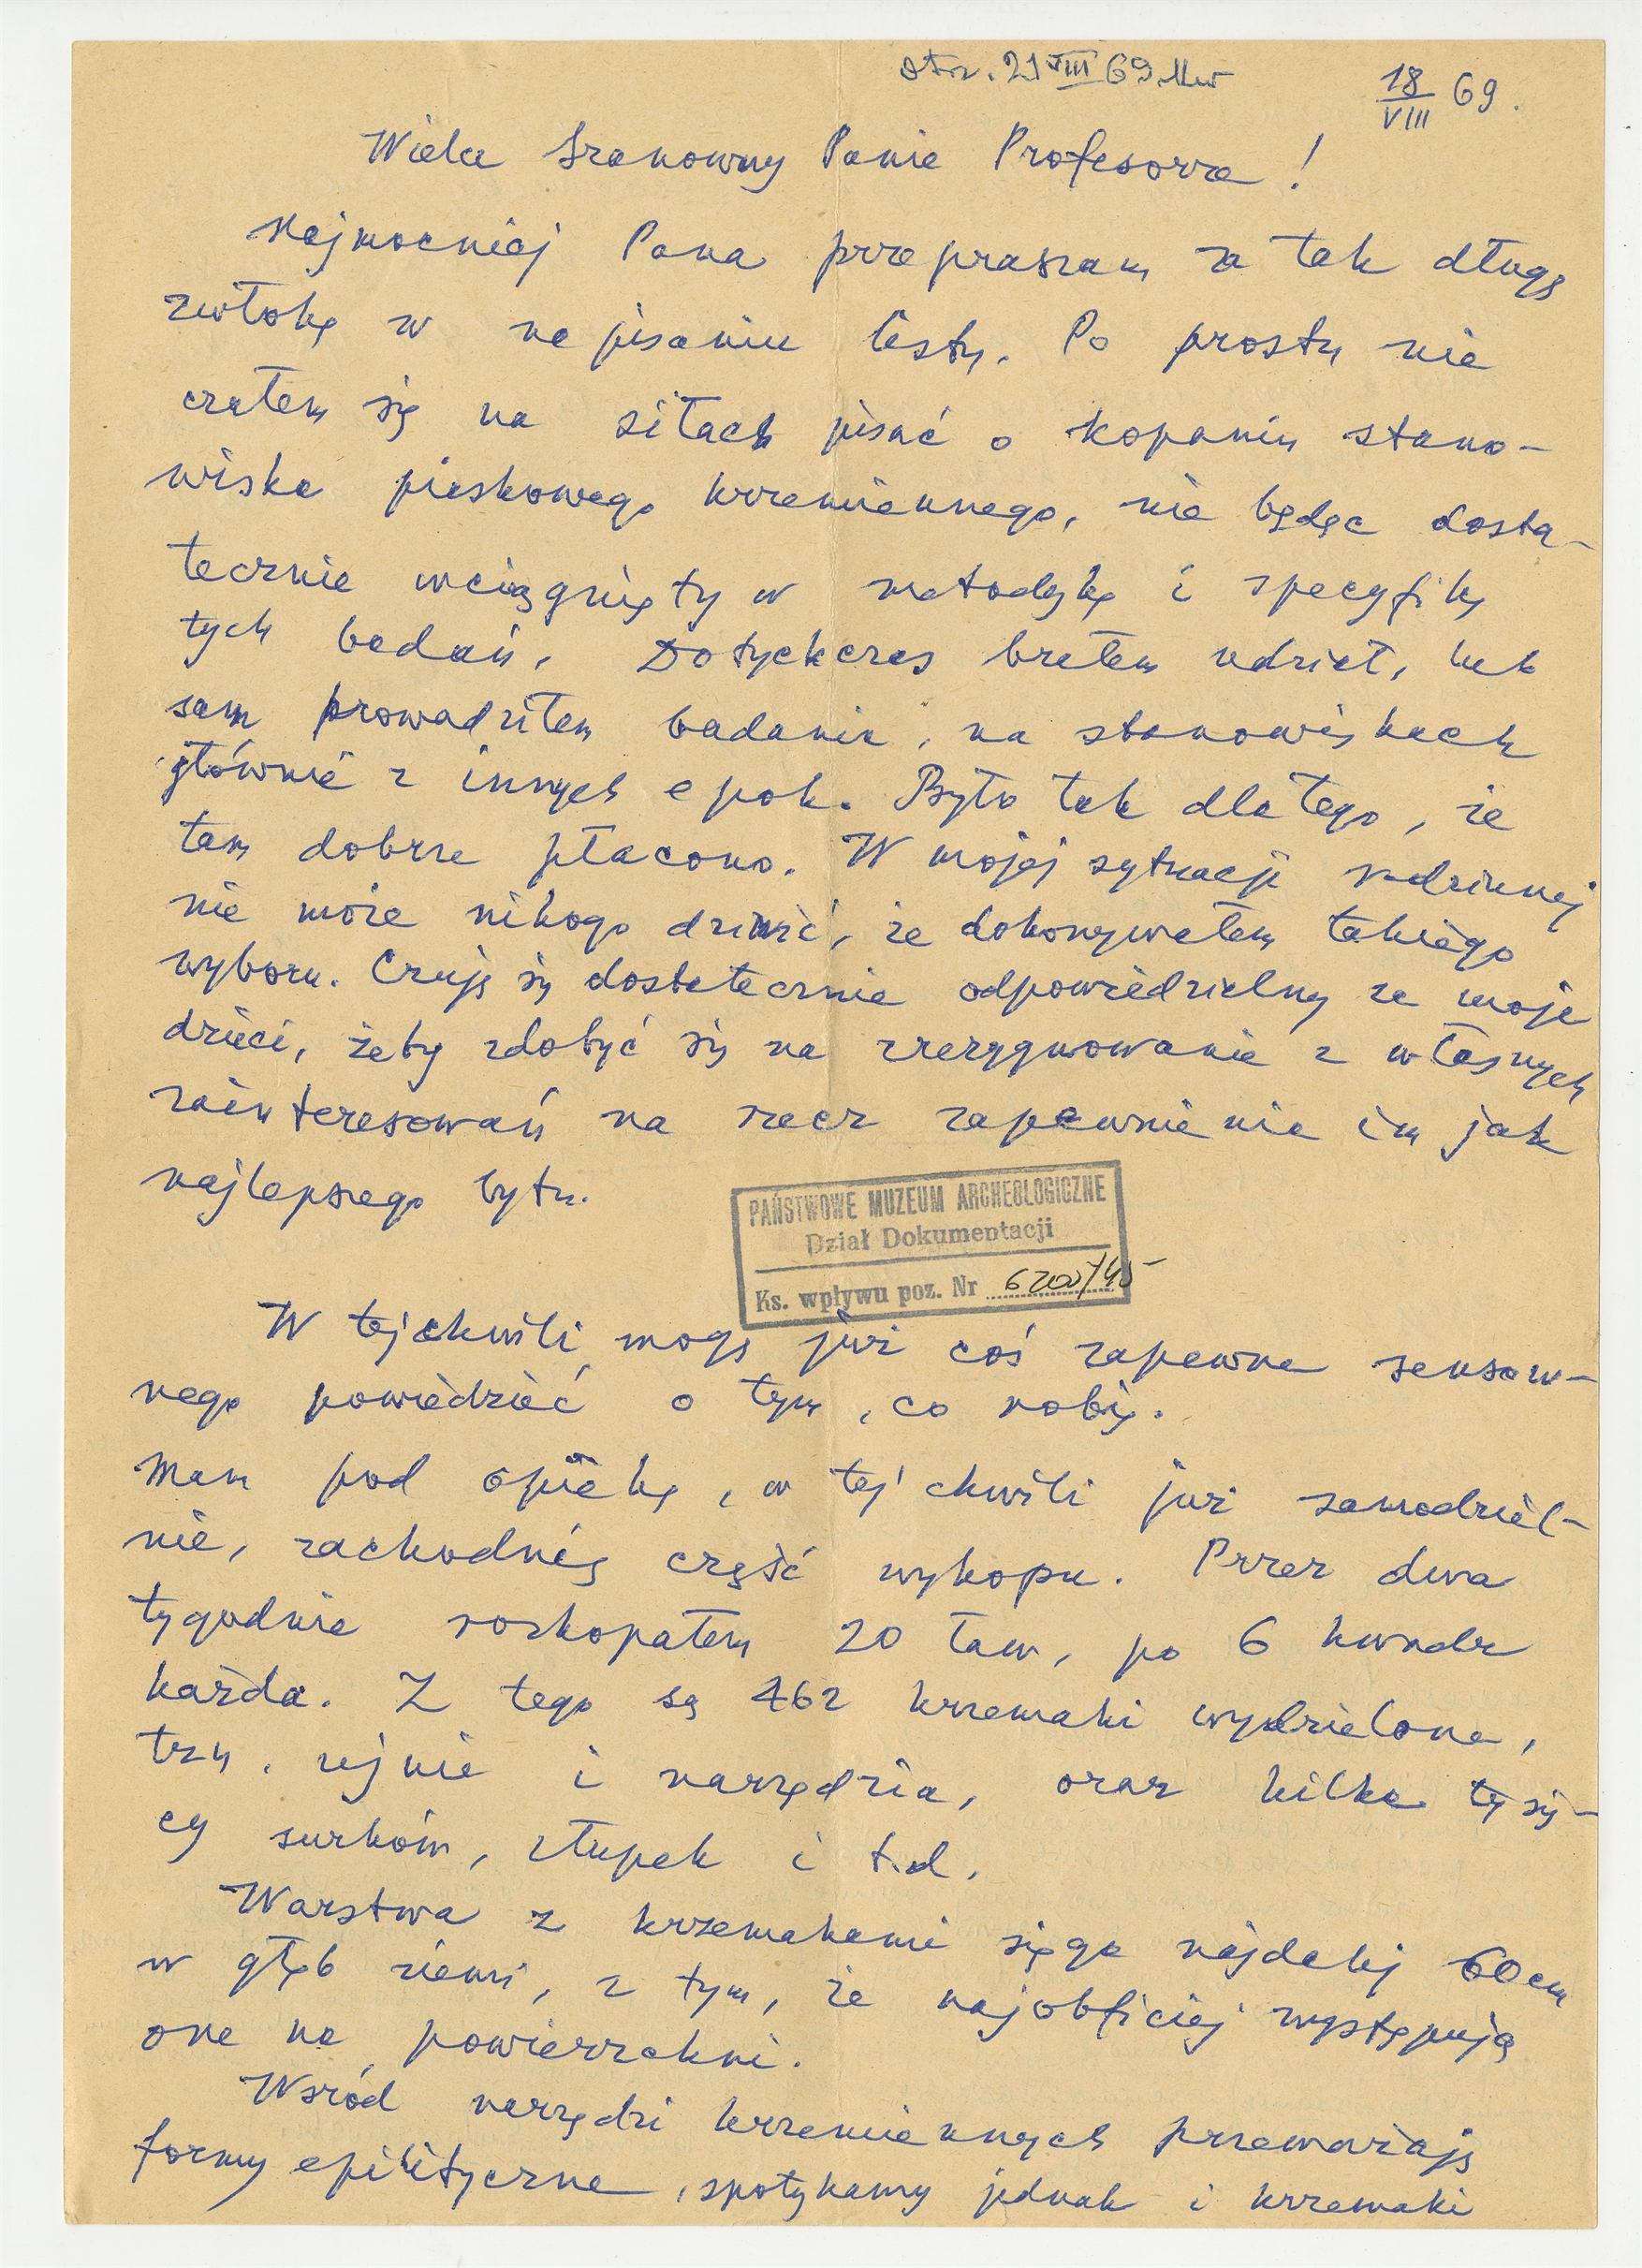 otrz. 21 VIII 69
18/VIII 69.
Wielce Szanowny Panie Profesorze!
Najmocniej Pana przepraszam za tak długą
zwłokę w napisaniu listu. Po prostu nie
czułem się na siłach pisać o kopaniu stano-
wiska piaskowego krzemiennego, nie będąc dosta-
tecznie wciągnięty w metodykę i specyfikę
tych badań. Dotychczas brałem udział, lub
sam prowadziłem badania, na stanowiskach
głównie z innych epok. Było tak dlatego, że
tam dobrze płacono. W mojej sytuacji rodzinnej
nie może nikogo dziwić, że dokonywałem takiego
wyboru. Czuję się dostatecznie odpowiedzialny za moje
dzieci, żeby zdobyć się na zrezygnowanie z własnych
zainteresowań na rzecz zapewnienia im jak
najlepszego bytu.
PAŃSTWOWE MUZEUM ARCHEOLOGICZNE
Dział Dokumentacji
Ks. wpływu poz. Nr 6200/45
W tej chwili mogę już coś zapewne sensow-
nego powiedzieć o tym, co robię.
Mam pod opieką, w tej chwili już samodziel-
nie, zachodnią część wykopu. Przez dwa
tygodnie rozkopałem 20 ław, po 6 kwadr
każda. Z tego są 462 krzemaki wydzielone,
tzn. rdzenie i narzędzia, oraz kilka tysię-
cy surków, złupek i t.d.
Warstwa z krzemakami sięga najdalej 60 cm
w głąb ziemi, z tym, że najobficiej występują
one na powierzchni.
Wśród narzędzi krzemiennych przeważają
formy epilityczne, spotykamy jednak i krzemaki